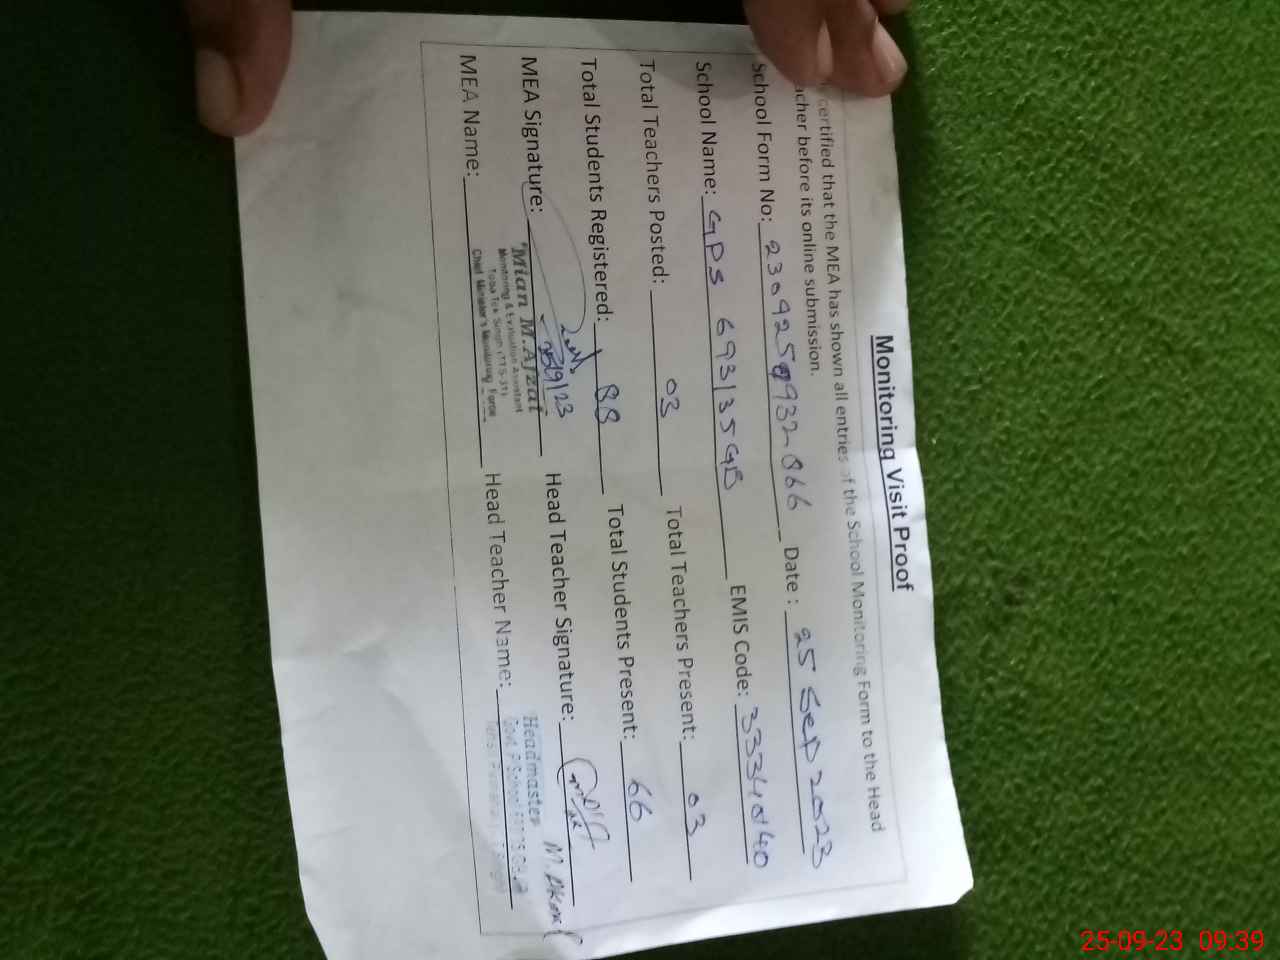 Monitoring Visit Proof
certified that the MEA has shown all entries of the School Monitoring Form to the Head
acher before its online submission.
School Form No: Date: 25 Sep 2023
School Name: GPS 693/35GB EMIS Code: 33340140
Total Teachers Posted: 03 Total Teachers Present: 03
Total Students Registered: 88 Total Students Present: 66
MEA Signature: 25/9/23 Head Teacher Signature:
MEA Name: Mian M. Afzal Head Teacher Name: Headmaster
Monitoring & Evaluation Assistant
Toba Tek Singh (TTS-31)
Chief Minister's Monitoring Force
25-09-23 09:39